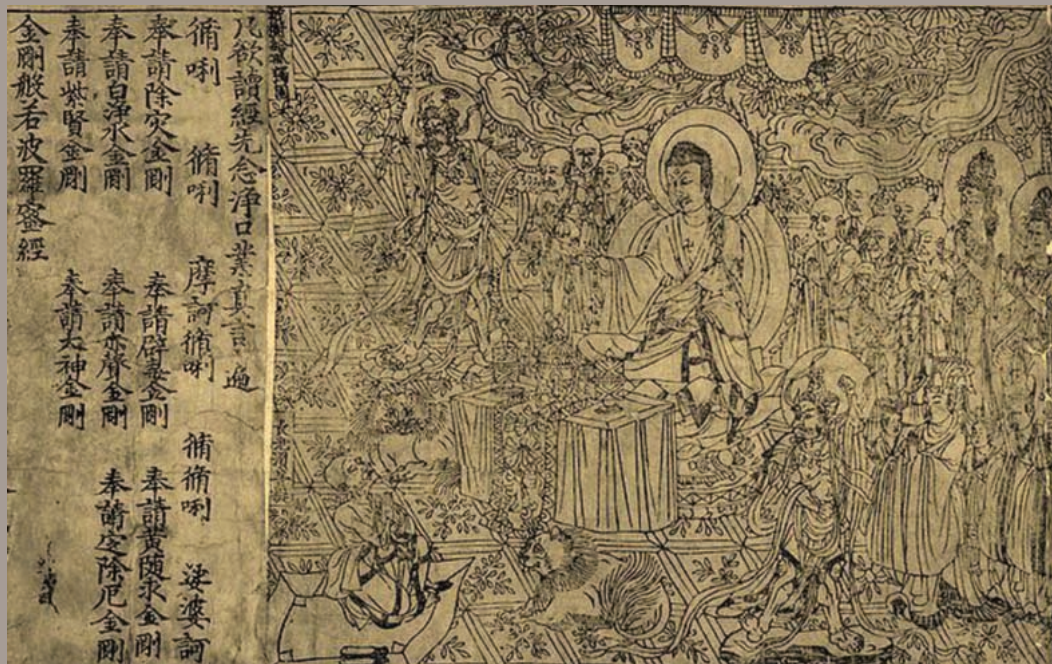 凡欲讀經先念淨口業真言 遍
脩唎 脩唎 摩訶脩唎 脩脩唎 娑婆訶
奉請除灾金剛 奉請辟毒金剛 奉請黃随求金剛
奉請白淨水金剛 奉請赤聲金剛 奉請定除厄金剛
奉請紫賢金剛 奉請大神金剛
金剛般若波羅蜜經